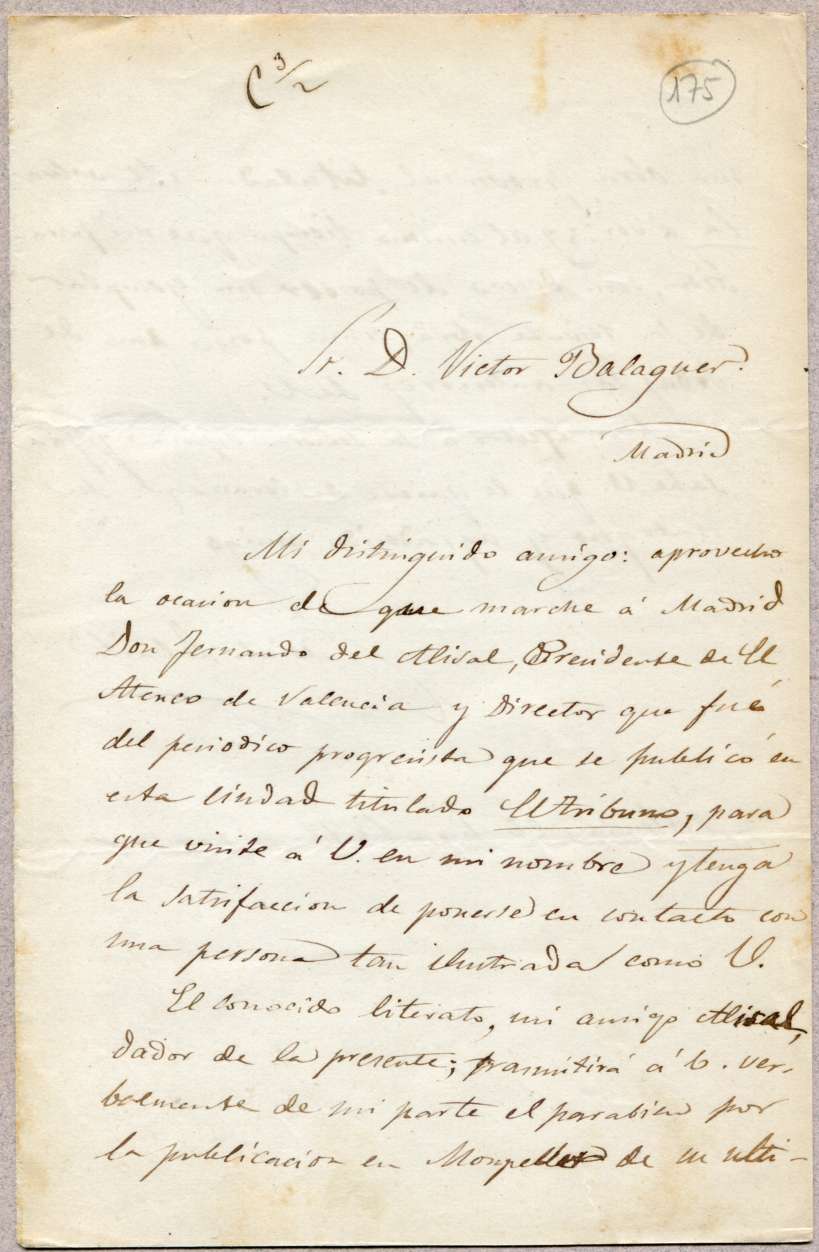 C 3/2
175
Sr. D. Victor Balaguer.
Madrid
Mi distinguido amigo: aprovecho
la ocasion de que marche á Madrid
Don Fernando del Alisal, Presidente de El
Ateneo de Valencia y Director que fué
del periodico progresista que se publicó en
esta ciudad titulado El Tribuno, para
que visite á V. en mi nombre y tenga
la satisfaccion de ponerse en contacto con
una persona tan ilustrada como V.
El conocido literato, mi amigo Alisal,
dador de la presente; trasmitirá á V. ver-
balmente de mi parte el parabien por
la publicacion en Monpeller de su ulti-